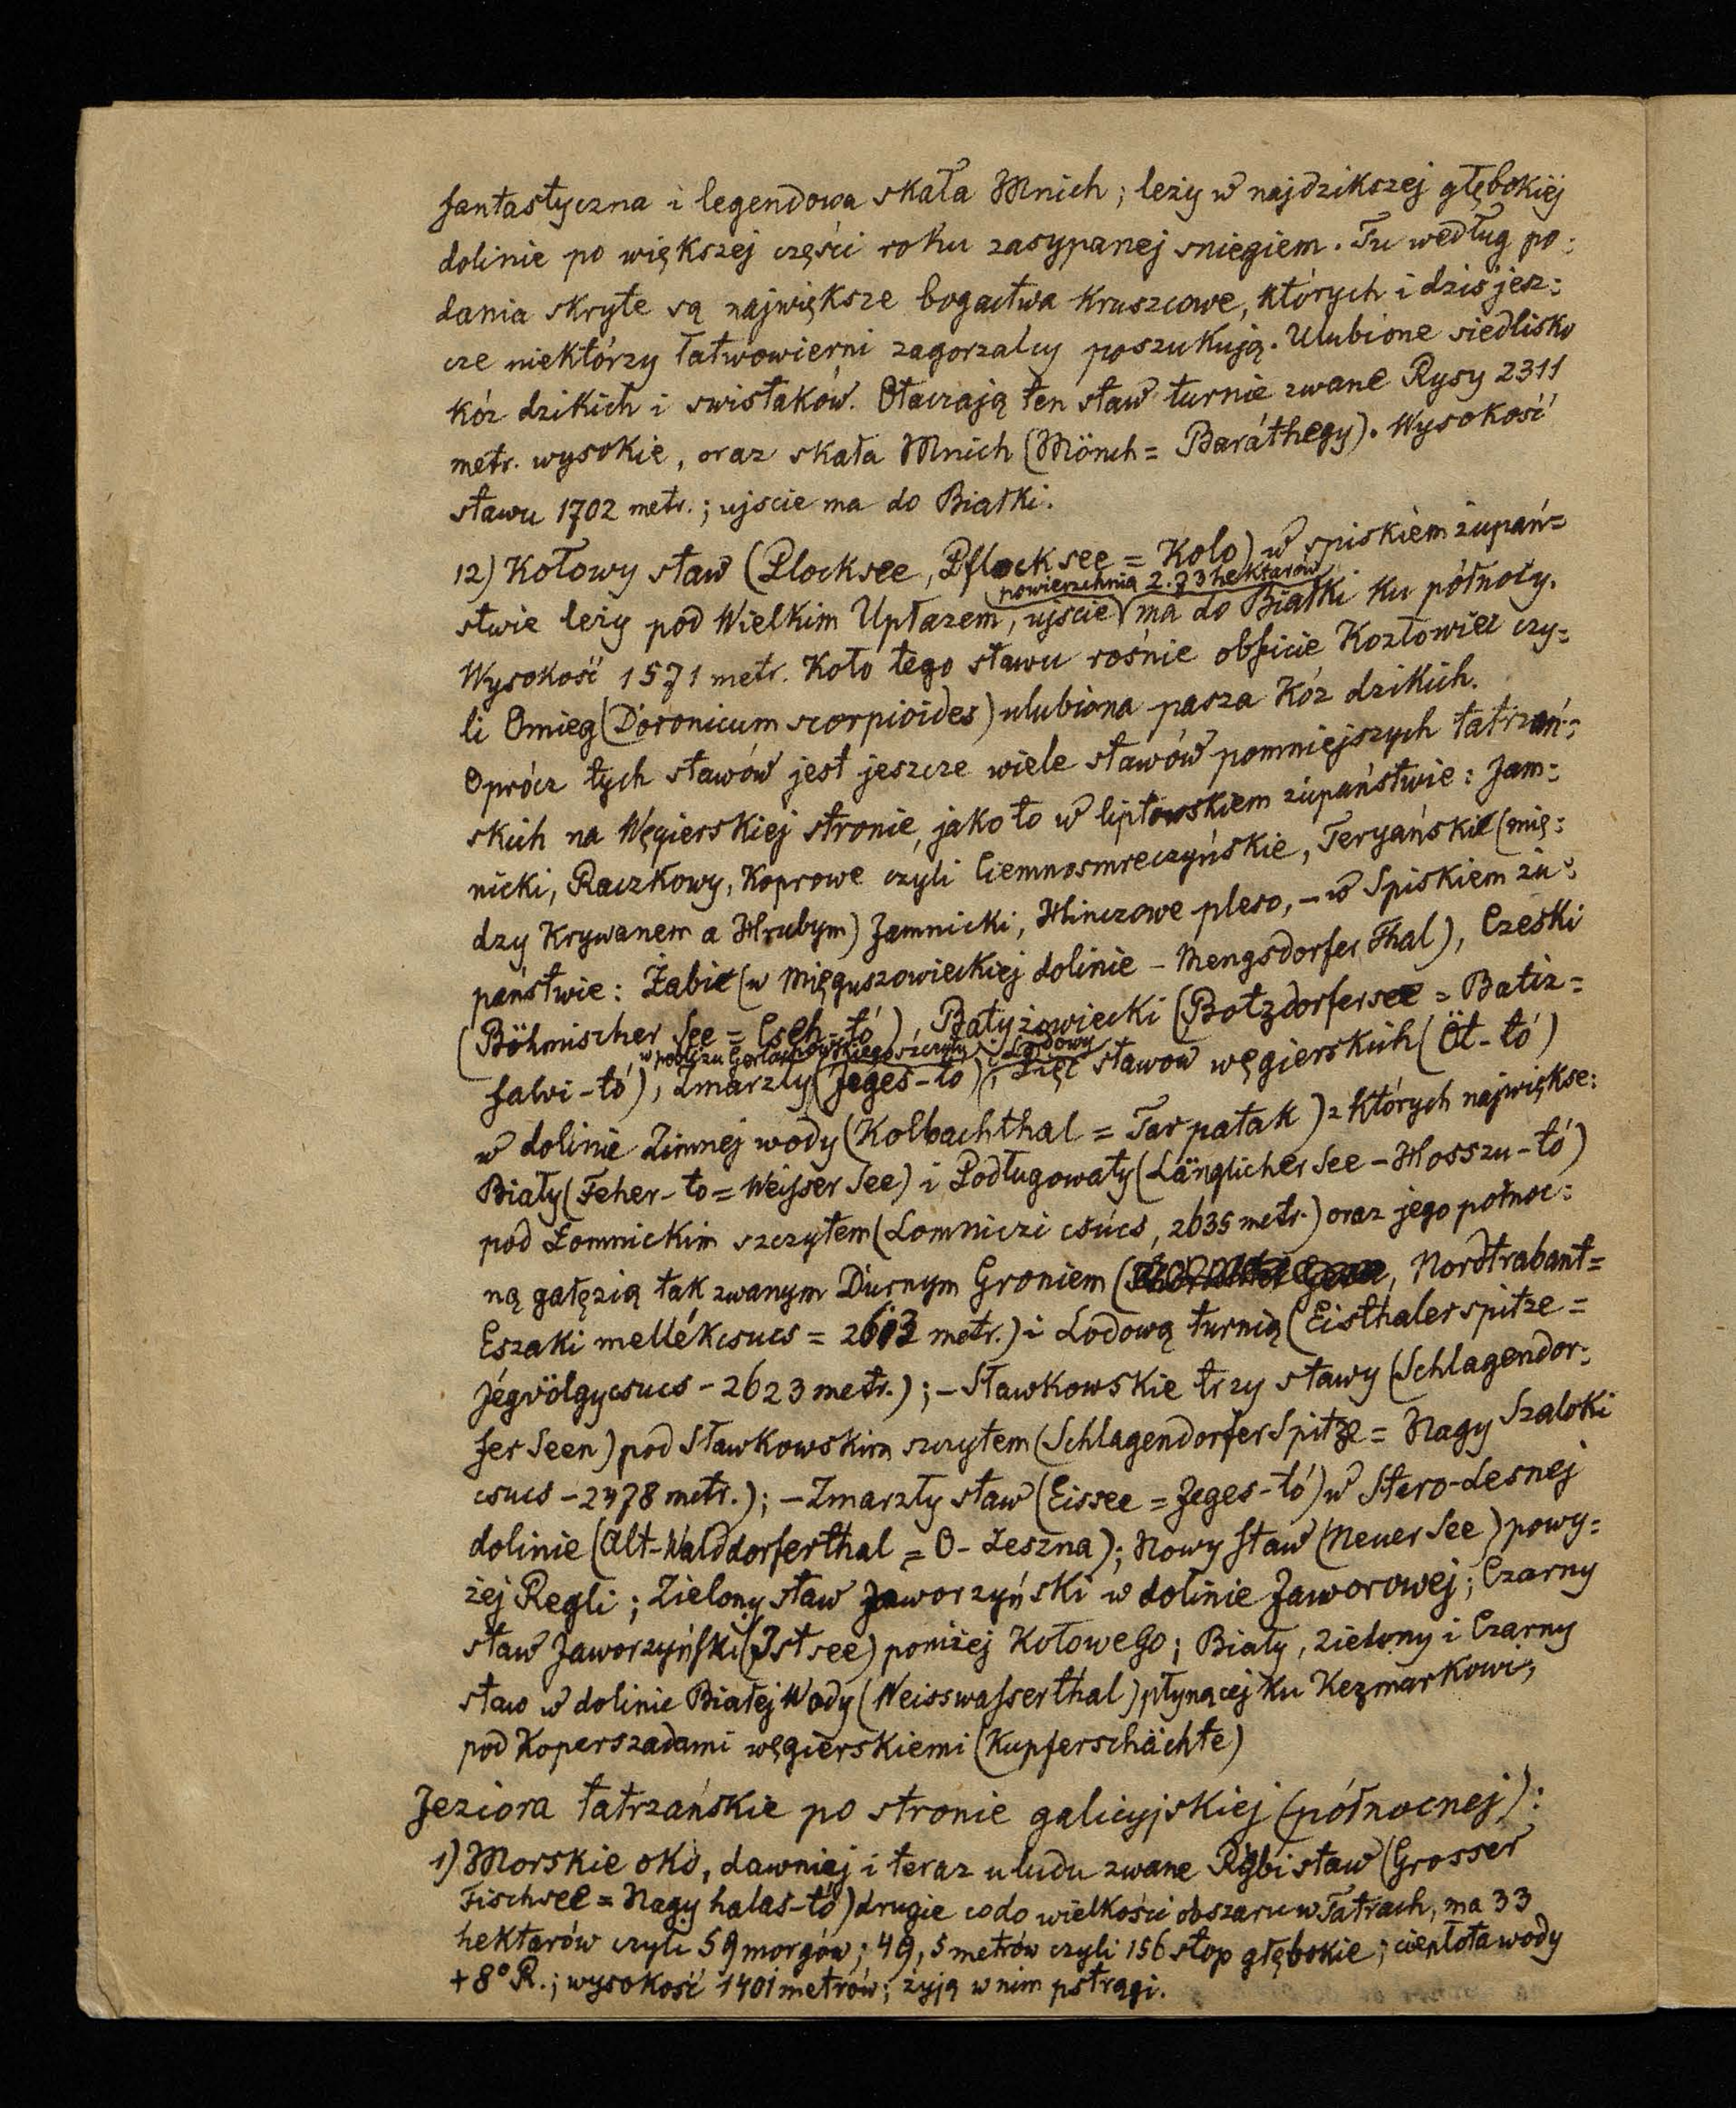 fantastyczna i legendowa skała Mnich; leży w najdzikszej głębokiéj
dolinie po większej części roku zasypanej sniegiem. Tu według po=
dania skryte są największe bogactwa kruszcowe, których i dziś jesz=
cze niektórzy łatwowierni zagorzalcy poszukują. Ulubione siedlisko
kóz dzikich i swistaków. Otaczają ten staw turnie zwane Rysy 2311
metr. wysokie, oraz skała Mnich (Mönch = Baráthegy). Wysokość
stawu 1702 metr.; ujscie ma do Białki.
12) Kołowy staw (Plocksee, Pflocksee = Kolo) w spiskiem żupań=
powierzchnia 2.73 hektarów
stwie leży pod Wielkim Upłazem, ujscie ma do Białki ku północy.
Wysokość 1571 metr. Koło tego stawu rośnie obficie Kozłowiec czy=
li Omieg (Doronicum scorpioides) ulubiona pasza kóz dzikich.
Oprócz tych stawów jest jeszcze wiele stawów pomniejszych tatrzań=
skich na Węgierskiej stronie, jako to w liptowskiem żupaństwie: Jam=
nicki, Raczkowy, Koprowe czyli Ciemnosmreczyńskie, Teryańskie (mię=
dzy Krywanem a Hrubym) Jamnicki, Hinczowe pleso, – w Spiskiem żu=
państwie: Żabie (w Mięguszowieckiej dolinie – Mengsdorfer Thal), Czeski
(Böhmischer See = Cseh-tó), Batyżowiecki (Botzdorfersee = Batiz=
w pobliżu Gerlachowskiego szczytu i Lodowy
falvi-tó), Zmarzły (Jeges-tó), Pięć stawow węgierskich (Öt-tó)
w dolinie Zimnej wody (Kolbachthal = Tarpatak) z których największe:
Biały (Feher-to = Weisser See) i Podługowaty (Länglicher See – Hosszu-tó)
pod Łomnickim szczytem (Lomniczi csúcs, 2635 metr.) oraz jego północ=
ną gałęzią tak zwanym Durnym Groniem (, Nordtrabant=
Eszaki mellékcsucs = 2613 metr.) i Lodową turnią (Eisthalerspitze =
Jégvölgycsucs – 2623 metr.); – Sławkowskie trzy stawy (Schlagendor=
fer Seen) pod Sławkowskim szczytem (Schlagendorfer Spitze = Nagy Szaloki
csucs – 2478 metr.); – Zmarzły staw (Eissee = Jeges-tó) w Staro-Lesnej
dolinie (Alt-Walddorferthal = O-Leszna); Nowy staw (Neuer See) powy=
żej Regli; Zielony staw Jaworzyński w dolinie Jaworowej; Czarny
staw Jaworzyński (Istsee) poniżej Kołowego; Biały, Zielony i Czarny
staw w dolinie Białej Wody (Weisswasserthal) płynącej ku Kezmarkowi,
pod Koperszadami węgierskiemi (Kupferschächte)
Jeziora tatrzańskie po stronie galicyjskiej (północnej):
1) Morskie oko, dawniej i teraz u ludu zwane Rybi staw (Grosser
Fischsee = Nagy halas-tó) drugie co do wielkości obszaru w Tatrach, ma 33
hektarów czyli 59 morgów; 49,5 metrów czyli 156 stop głębokie; ciepłota wody
+8° R.; wysokość 1401 metrów; żyją w nim pstrągi.